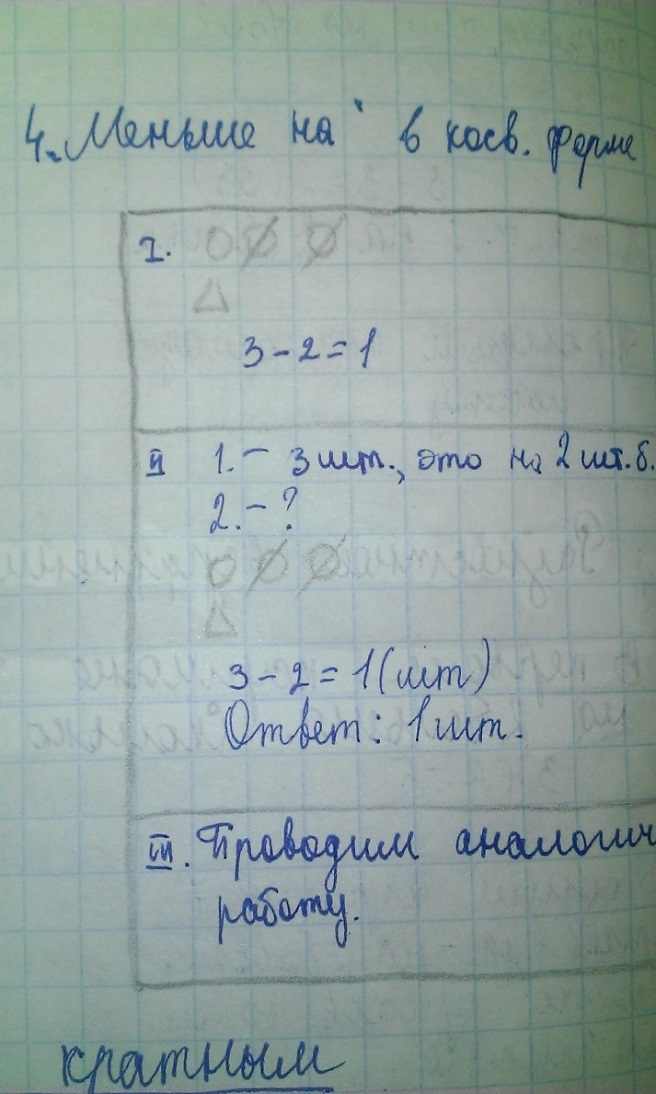 4. Меньше на" в косв. форме
I.
3-2=1
II 1. - 3 шт., это на 2 шт. б.
2. - ?
3-2=1(шт)
Ответ: 1 шт.
III. Проводим аналогич
работу.
кратным